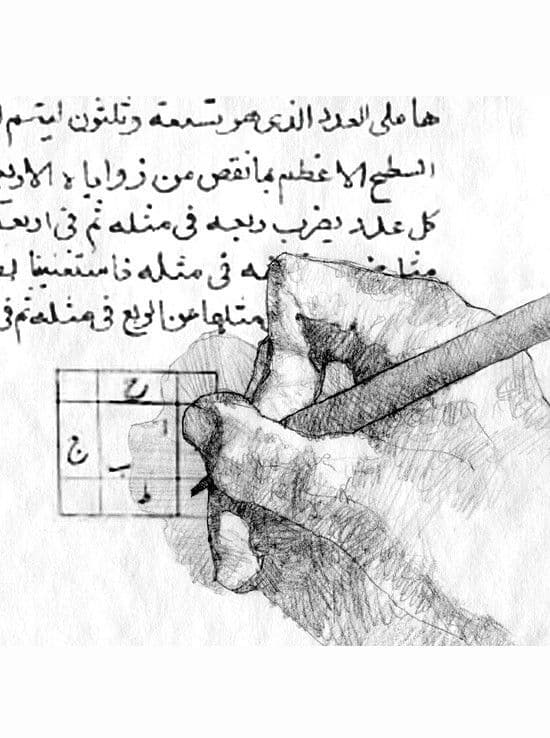 ها على العدد الذى هو تسعة وثلثون ليتم
السطح الاعظم بما نقص من زواياه
كل عدد يضرب ربعه فى مثله ثم فى
فى مثله فاستغنينا
مثلها عن الربع فى مثله ثم فى
ح
ا
ج
ب
ط